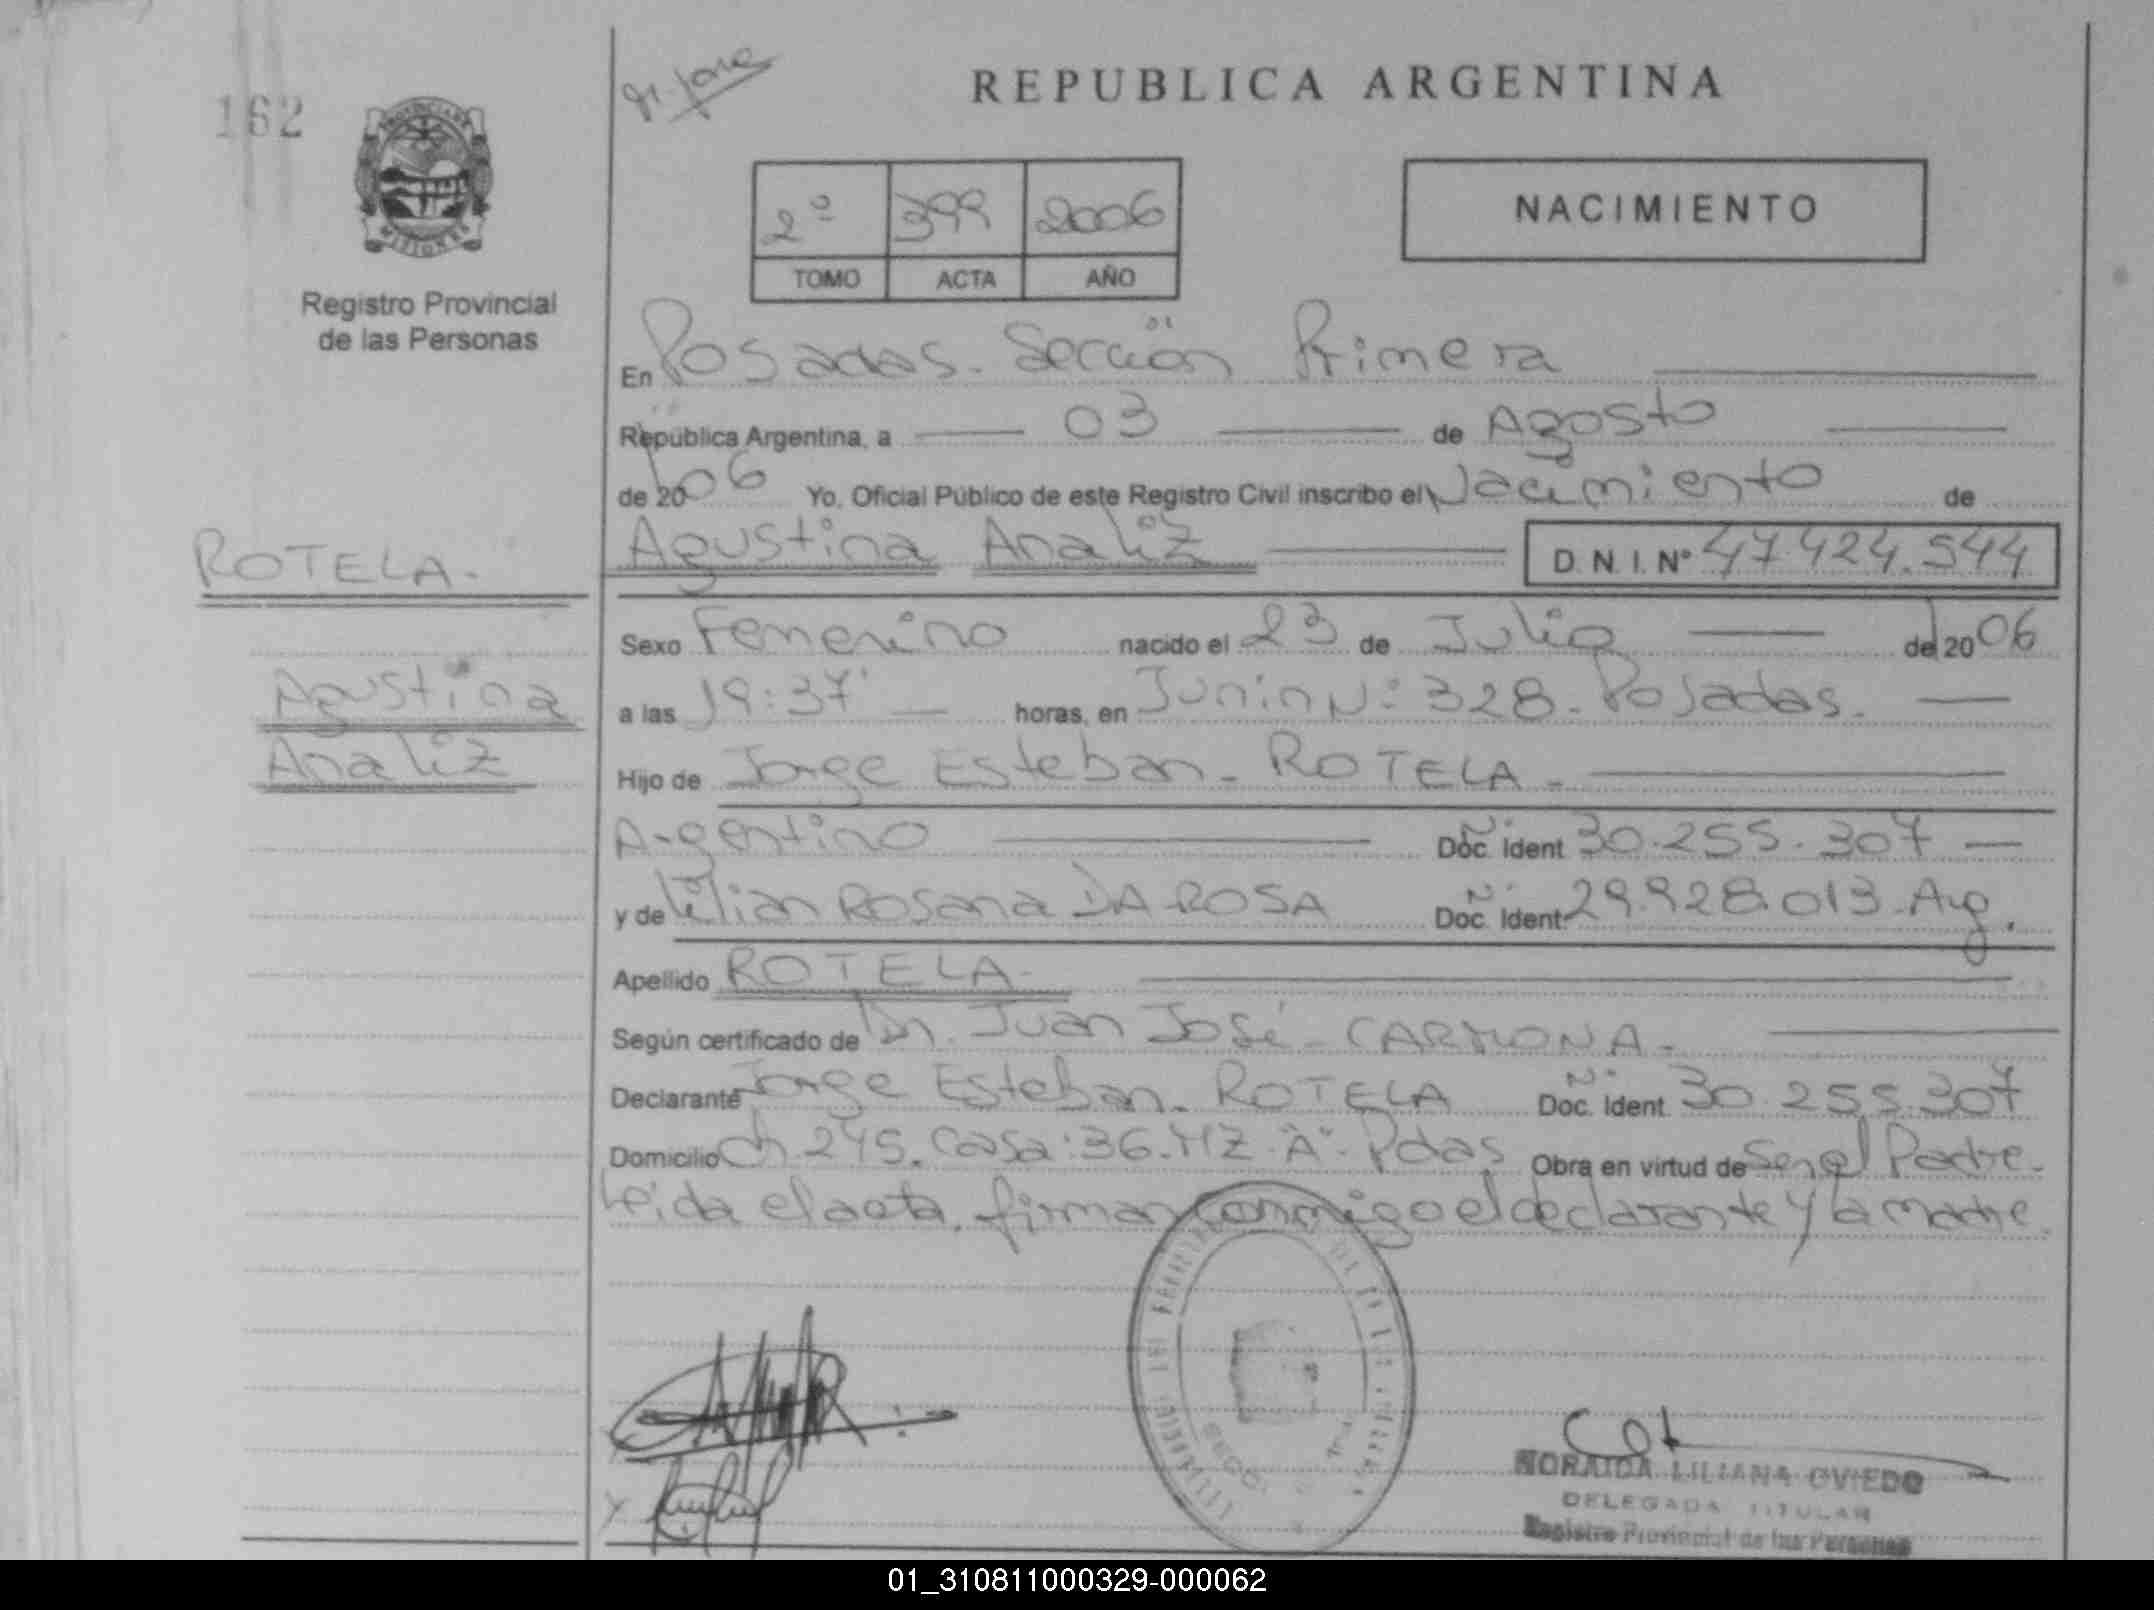 162
REPUBLICA ARGENTINA
PROVINCIA DE
MISIONES
Registro Provincial
de las Personas
2º 399 2006
TOMO ACTA AÑO
NACIMIENTO
En Posadas. Sección Primera
República Argentina, a 03 de Agosto
de 2006 Yo, Oficial Público de este Registro Civil inscribo el Nacimiento de
ROTELA.
Agustina Analiz D.N.I. Nº 47.424.544
Sexo Femenino nacido el 23 de Julio de 2006
Agustina
Analiz
a las 19:37' horas, en Junin Nº 328. Posadas.
Hijo de Jorge Esteban - ROTELA -
Argentino Doc. Ident Nº 30.255.307
y de Lilian Rosana DA ROSA Doc. Ident Nº 29.928.013. Arg.
Apellido ROTELA
Según certificado de Dr. Juan José - CARMONA -
Declarante Jorge Esteban - ROTELA Doc. Ident Nº 30.255.307
Domicilio Ch 245. Casa: 36. MZ "A" Pdas Obra en virtud de Ser el Padre.
leida el acta, firman conmigo el declarante y la madre.
NORAIDA LILIANA OVIEDO
DELEGADA TITULAR
Registro Provincial de las Personas
01_310811000329-000062